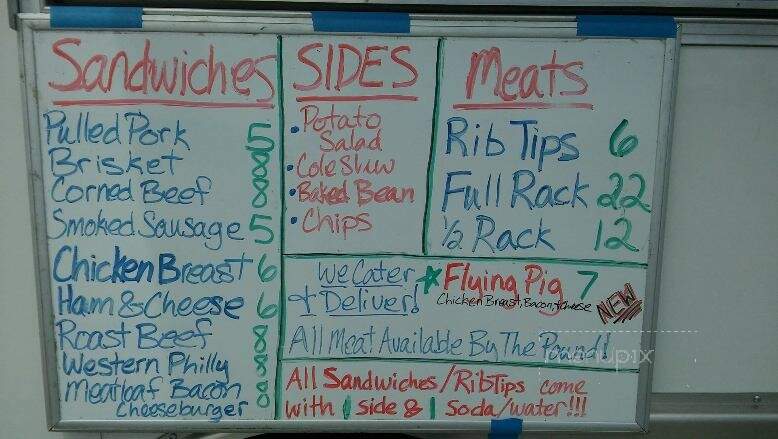 Sandwiches
Pulled Pork 5
Brisket 8
Corned Beef 8
Smoked Sausage 5
Chicken Breast 6
Ham & Cheese 6
Roast Beef 8
Western Philly 8
Meatloaf Bacon
Cheeseburger 8
SIDES
• Potato
Salad
• Cole Slaw
• Baked Bean
• Chips
Meats
Rib Tips 6
Full Rack 22
1/2 Rack 12
We Cater
& Deliver!
Flying Pig 7
Chicken Breast, Bacon, & cheese
NEW
All Meat Available By The Pound!
All Sandwiches/Rib Tips come
with 1 side & 1 Soda/water!!!